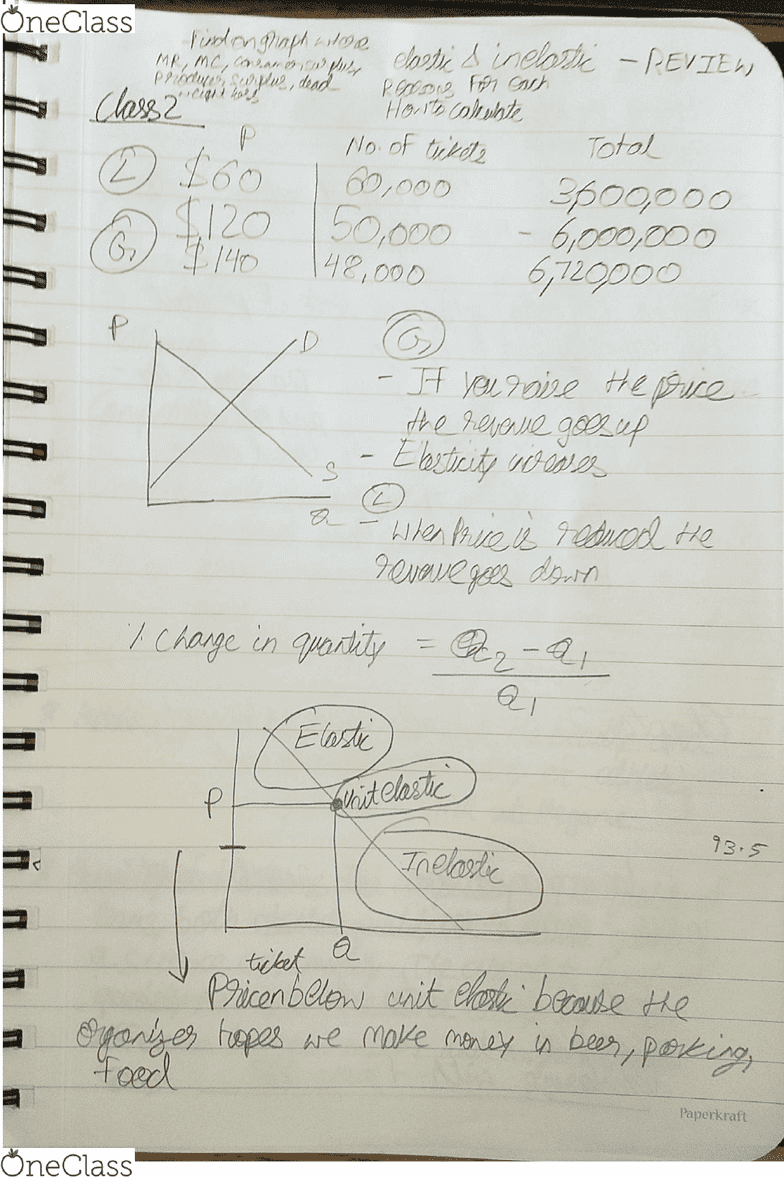 OneClass
Find on graph where
MR, MC, consumer surplus,
Producer surplus, dead
weight loss
elastic & inelastic - REVIEW
Reasons For each
How to calculate
Class 2
P No. of tickets Total
L $60 60,000 3,600,000
$120 50,000 - 6,000,000
G $140 48,000 6,720,000
P
D
S
Q
G
- If you raise the price
the revenue goes up
- Elasticity increases
L
- When Price is reduced the
revenue goes down
% change in quantity = Q2 - Q1
Q1
Elastic
P
unit elastic
Inelastic
93.5
Q
ticket
Price below unit elastic because the
organizer hopes we make money in beer, parking,
Food
Paperkraft
OneClass